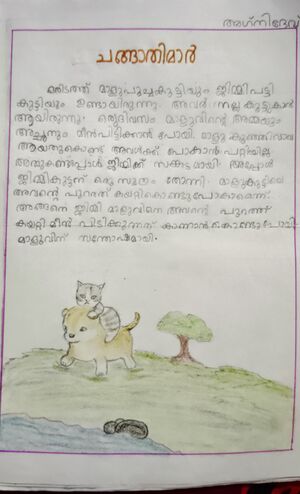 അഗ്നിദേവ്
ചങ്ങാതിമാർ
ഒരിടത്ത് മാളുപൂച്ചകുട്ടിയും ജിമ്മിപട്ടി
കുട്ടിയും ഉണ്ടായിരുന്നു. അവർ നല്ല കൂട്ടുകാർ
ആയിരുന്നു. ഒരുദിവസം മാളുവിന്റെ അമ്മയും
അച്ഛനും മീൻപിട്ടിക്കാൻ പോയി. മാളു കുഞ്ഞുവാവ
ആയതുകൊണ്ട് അവൾക്ക് പോകാൻ പറ്റിയില്ല.
അതുകണ്ടപ്പോൾ ജിമ്മിക്ക് സങ്കടമായി. അപ്പോൾ
ജിമ്മികുട്ടന് ഒരു സൂത്രം തോന്നി. മാളുകുട്ടിയെ
അവന്റെ പുറത്ത് കയറ്റികൊണ്ടുപോകാമെന്ന്.
അങ്ങനെ ജിമ്മി മാളുവിനെ അവന്റെ പുറത്ത്
കയറ്റി മീൻ പിടിക്കുന്നത് കാണാൻ കൊണ്ടുപോയി
മാളൂവിന് സന്തോഷമായി.